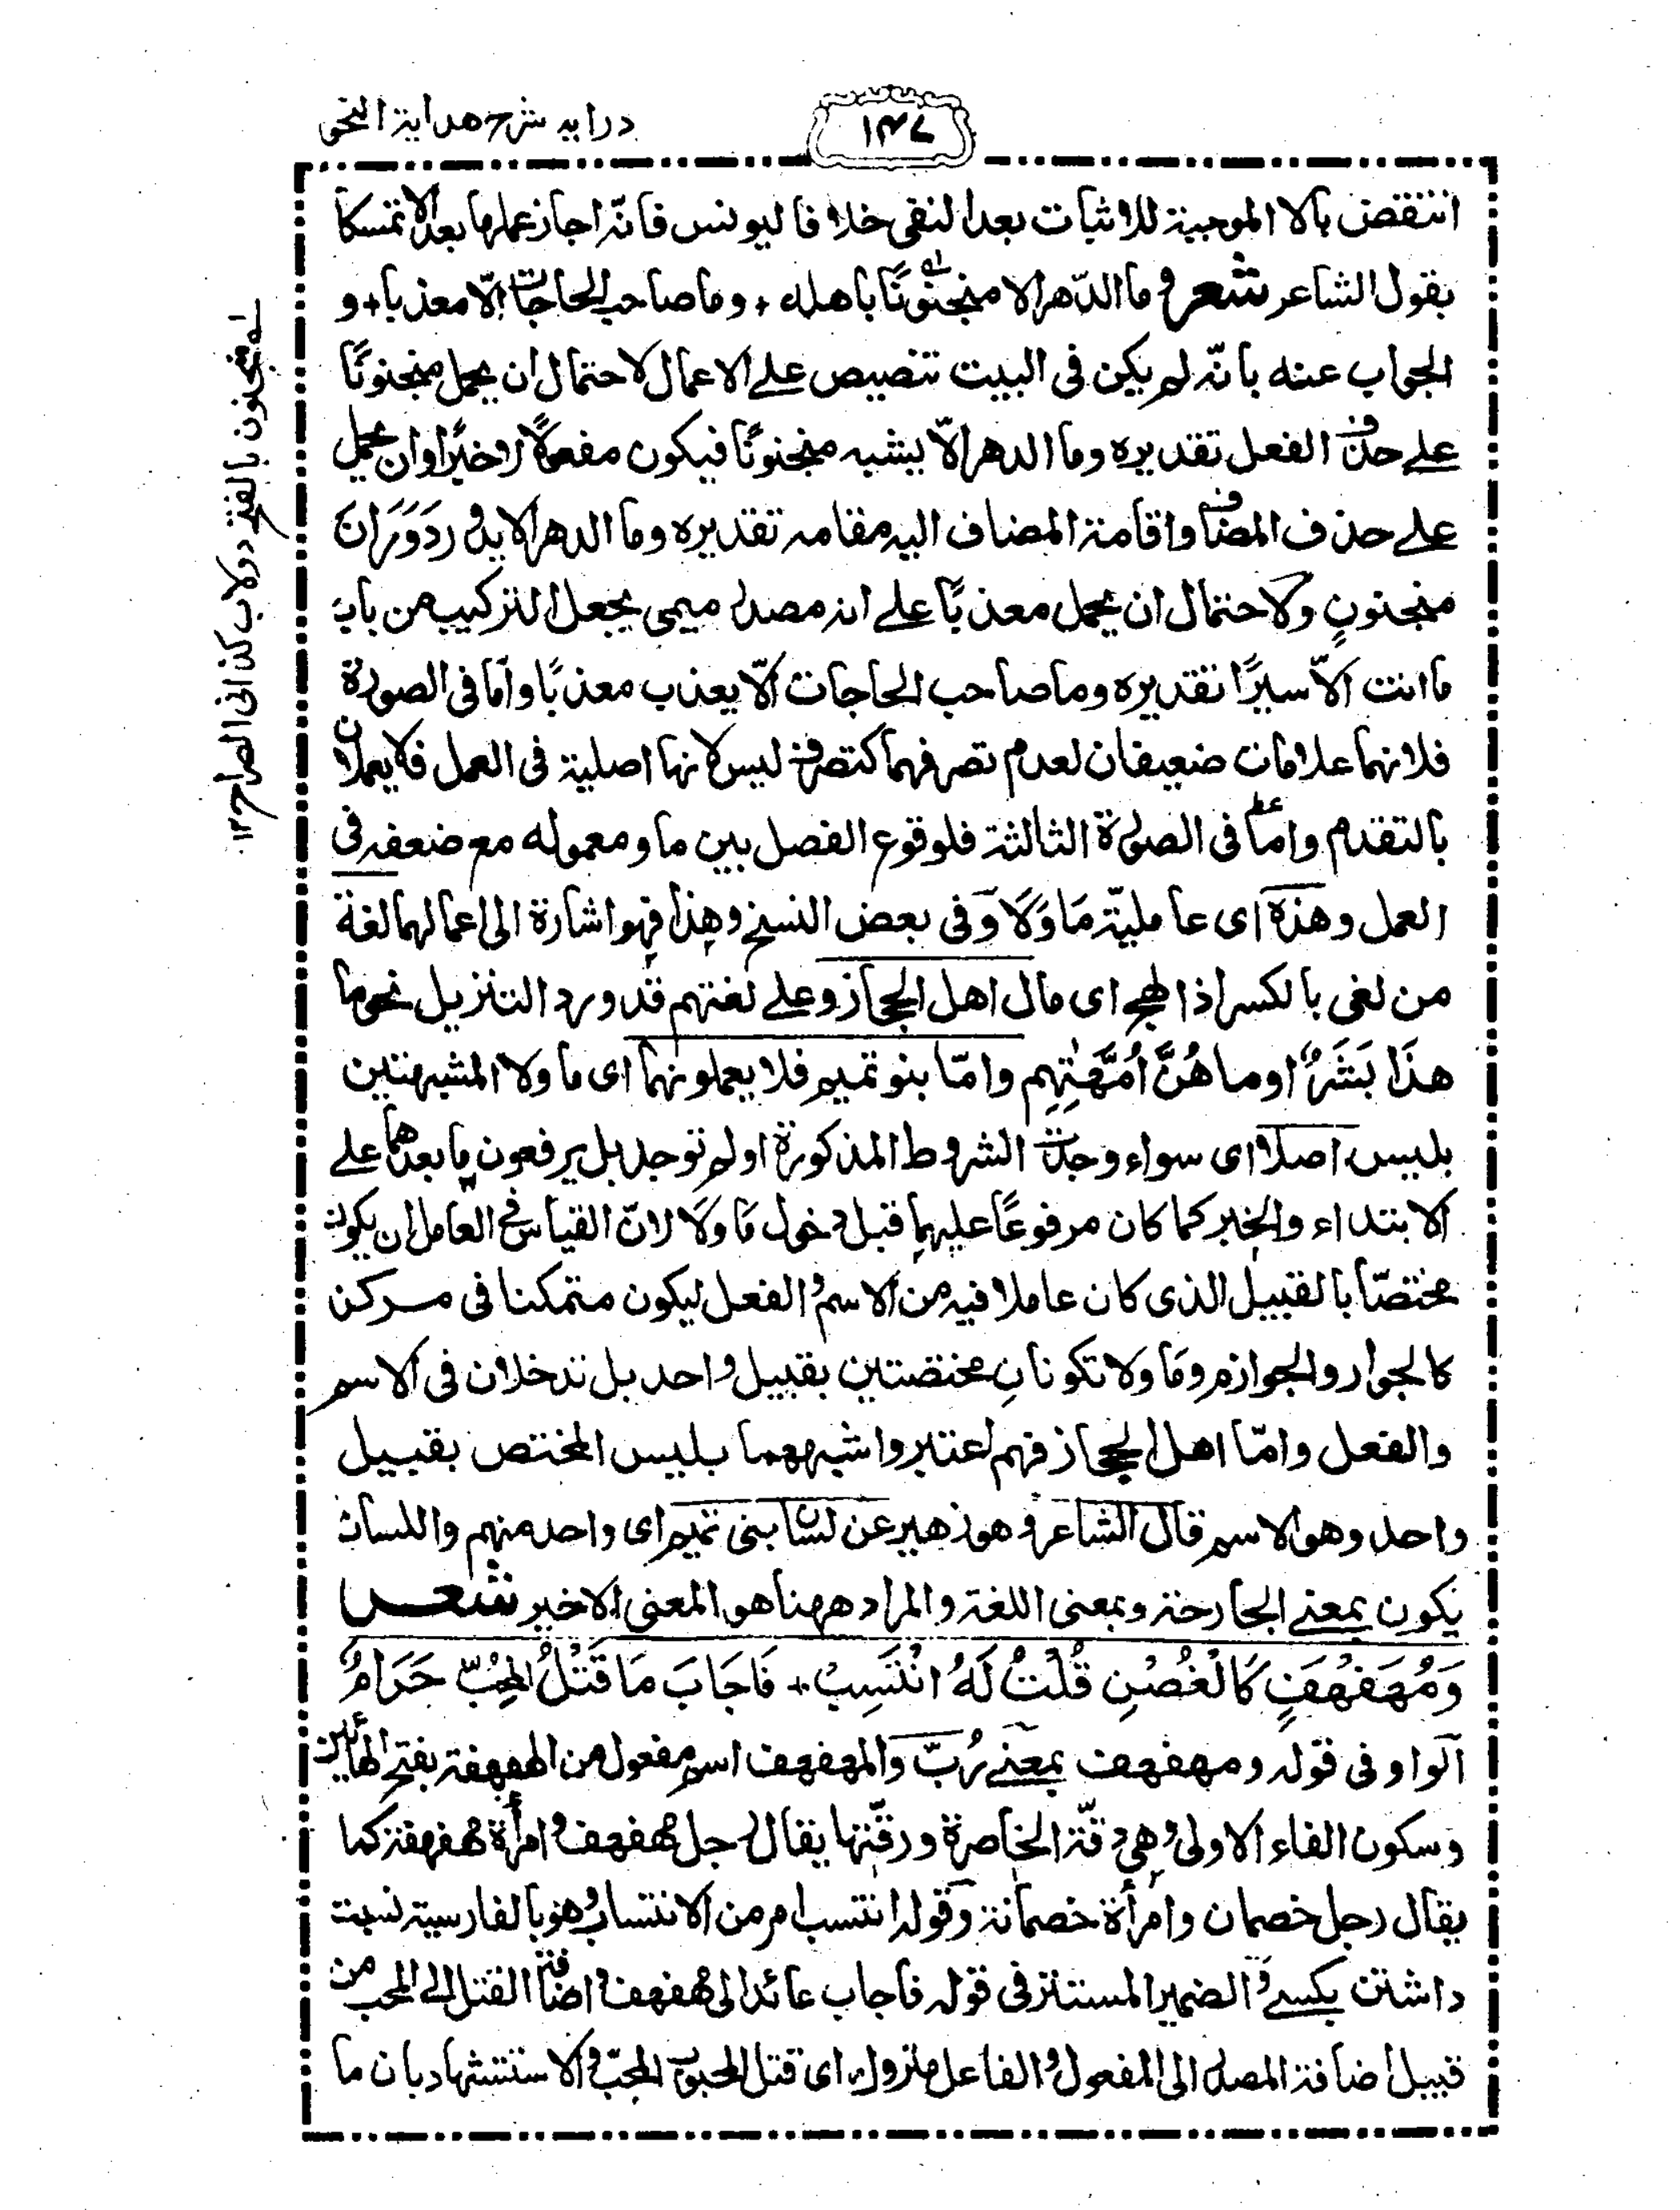 درايه شرح هداية النحو
١٤٧
انتقض بالا الموجبة للاثبات بعد النفى خلافا ليونس فانّه اجاز عملها بعد الا تمسكا
بقول الشاعر شعر وما الدّهر الا منجنونًا باهله + وما صاحب الحاجات الّا معذبا + و
الجواب عنه بانّه لم يكن فى البيت تنصيص على الاعمال لاحتمال ان يحمل منجنونًا
على حذف الفعل تقديره وما الدهر الّا يشبه منجنونًا فيكون مفعولًا لا خبرًا وان يحمل
على حذف المضاف واقامة المضاف اليه مقامه تقديره وما الدهر الا يدور دَوَرَانَ
منجنونٍ ولاحتمال ان يحمل معذبًا على انه مصدر ميمى يجعل التركيب من باب
ما انت الّا سيرًا تقديره وما صاحب الحاجات الّا يعذب معذبًا واما فى الصورة
فلانهما علامات ضعيفان لعدم تصرفهما كتصرف ليس لانها اصلية فى العمل فلا يعملان
بالتقدم واما فى الصورة الثالثة فلوقوع الفصل بين ما ومعموله مع ضعفه فى
العمل وهذه اى عاملية مَا وَلَا وفى بعض النسخ وهذا فهو اشارة الى اعمالهما لغة
من لغى بالكسر اذا لهج اى مال اهل الحجاز وعلى لغتهم قد ورد التنزيل نحو ما
هذَا بَشَرًا وما هُنَّ اُمَّهٰتِهِم وامّا بنو تميم فلا يعملونهما اى ما ولا المشبهتين
بليس اصلا اى سواء وجدت الشروط المذكورة او لم توجد بل يرفعون ما بعدهما على
الابتداء والخبر كما كان مرفوعًا عليهما قبل دخول مَا ولَا لانّ القياس فى العامل ان يكون
مختصّا بالقبيل الذى كان عاملا فيه من الاسم والفعل ليكون متمكنا فى مركز
كالجوار والجوازم ومَا ولا تكونانِ مختصتين بقبيل واحد بل تدخلان فى الاسم
والفعل وامّا اهل الحجاز فهم اعتبروا شبههما بليس المختص بقبيل
واحد وهو الاسم قال الشاعر وهو زهير عن لسان بنى تميم اى واحد منهم واللسان
يكون بمعنى الجارحة وبمعنى اللغة والمراد ههنا هو المعنى الاخير شعر
وَمُهَفْهَفٍ كَالْغُصْنِ قُلْتُ لَهُ انْتَسِبْ + فَاجَابَ مَا قَتْلُ الْمُحِبّ حَرَامٌ
الواو فى قوله ومهفهف بمعنى رُبّ والمهفهف اسم مفعول من الهفهفة بفتح الهائين
وسكون الفاء الاولى وهى دقّة الخاصرة ورقّتها يقال رجل مهفهف وامرأة مهفهفة كما
يقال رجل خصمان وامرأة خصمانة وقوله انتسب امر من الانتساب وهو بالفارسية نسبت
داشتن بكسے والضمير المستتر فى قوله فاجاب عائد الى مهفهف واضافة القتل الى المحب من
قبيل اضافة المصدر الى المفعول والفاعل متروك اى قتل المحبوب المحبّ والاستشهاد بان ما
لـه منجنون بالفتح دولاب كذا فى الصراح ١٢